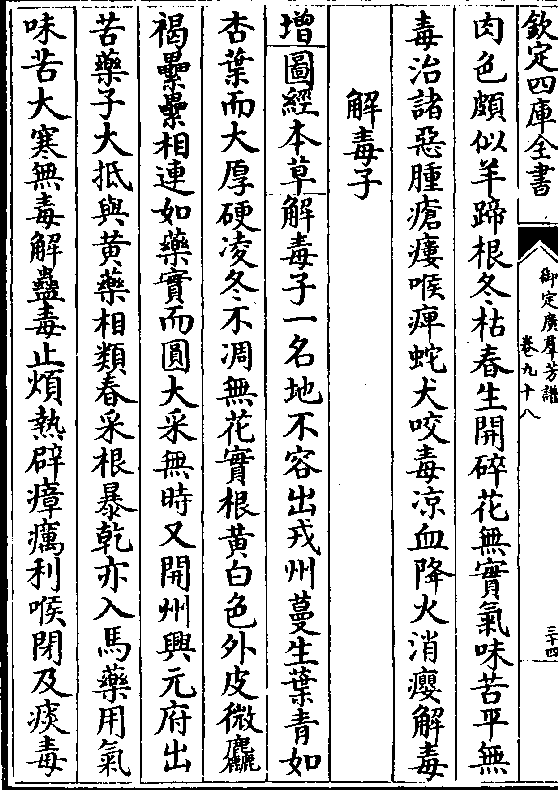 欽定四庫全書
御定廣羣芳譜
卷九十八
三十四
肉色頗似羊蹄根冬枯春生開碎花無實氣味苦平無
毒治諸惡腫瘡瘻喉痺蛇犬咬毒凉血降火消癭解毒
解毒子
增圖經本草解毒子一名地不容出戎州蔓生葉青如
杏葉而大厚硬凌冬不凋無花實根黄白色外皮微麤
褐纍纍相連如藥實而圓大采無時又開州興元府出
苦藥子大抵與黄藥相類春采根暴乾亦入馬藥用氣
味苦大寒無毒解蠱毒止煩熱辟瘴癘利喉閉及痰毒